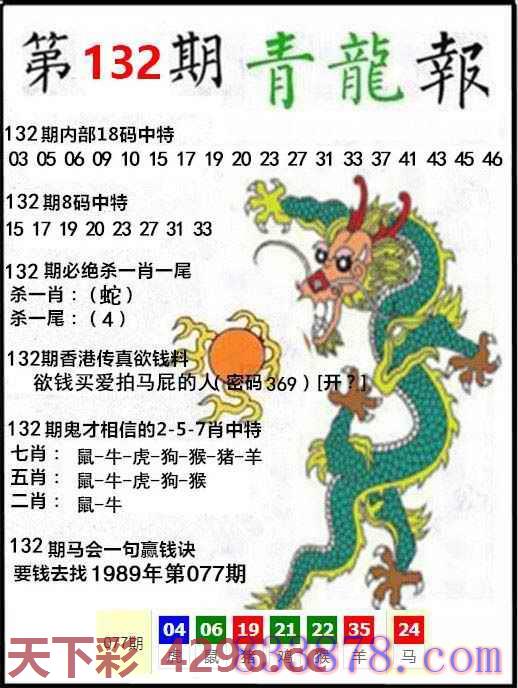 第132期青龍報
132期内部18码中特
03 05 06 09 10 15 17 19 20 23 27 31 33 37 41 43 45 46
132期8码中特
15 17 19 20 23 27 31 33
132期必绝杀一肖一尾
杀一肖：（蛇）
杀一尾：（4）
132期香港传真欲钱料
欲钱买爱拍马屁的人（密码369）[开？]
132期鬼才相信的2-5-7肖中特
七肖：鼠-牛-虎-狗-猴-猪-羊
五肖：鼠-牛-虎-狗-猴
二肖：鼠-牛
132期马会一句赢钱诀
要钱去找1989年第077期
077期 04 06 19 21 22 35 24
虎 鼠 猪 鸡 猴 羊 马
天下彩 4296.cc